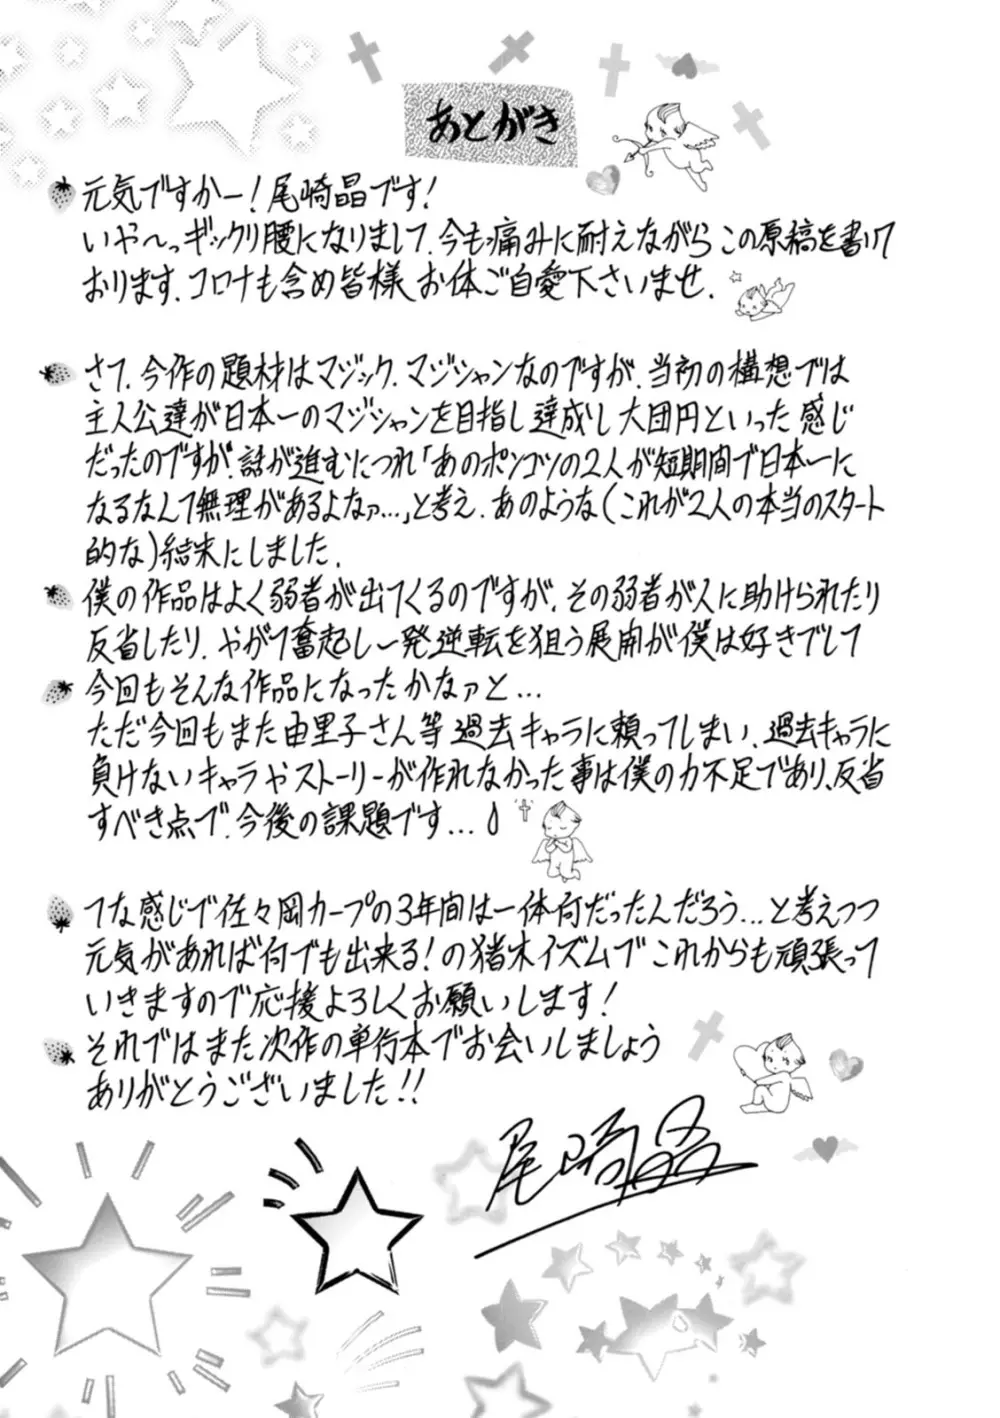 あとがき
元気ですかー!尾崎晶です!
いや〜っギックリ腰になりまして、今も痛みに耐えながらこの原稿を書いて
おります。コロナも含め皆様お体ご自愛下さいませ。
さて、今作の題材はマジック、マジシャンなのですが、当初の構想では
主人公達が日本一のマジシャンを目指し達成し大団円といった感じ
だったのですが、話が進むにつれ「あのポンコツの2人が短期間で日本一に
なるなんて無理があるよなァ…」と考え、あのような(これが2人の本当のスタート
的な)結末にしました。
僕の作品はよく弱者が出てくるのですが、その弱者が人に助けられたり
反省したり、やがて奮起し一発逆転を狙う展開が僕は好きでして
今回もそんな作品になったかなァと…
ただ今回もまた由里子さん等過去キャラに頼ってしまい、過去キャラに
負けないキャラやストーリーが作れなかった事は僕の力不足であり、反省
すべき点で、今後の課題です…
てな感じで佐々岡カープの3年間は一体何だったんだろう…と考えつつ
元気があれば何でも出来る!の猪木イズムでこれからも頑張って
いきますので応援よろしくお願いします!
それではまた次作の単行本でお会いしましょう
ありがとうございました!!
尾崎晶